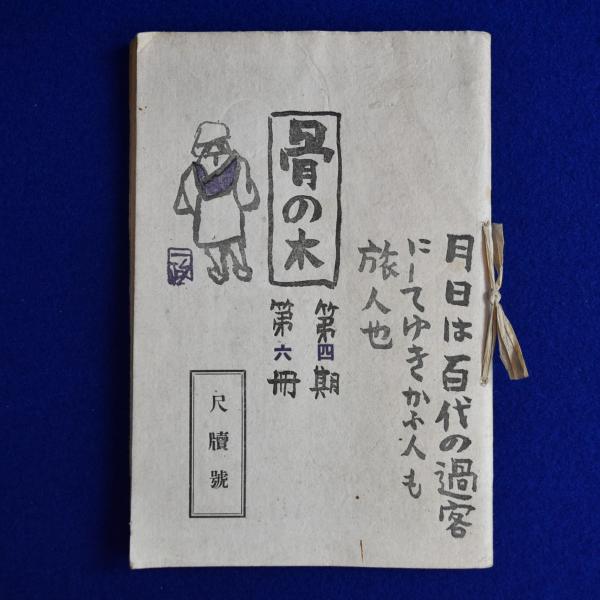 月日は百代の過客
にしてゆきかふ人も
旅人也
骨の木
第四期
第六冊
尺牘號